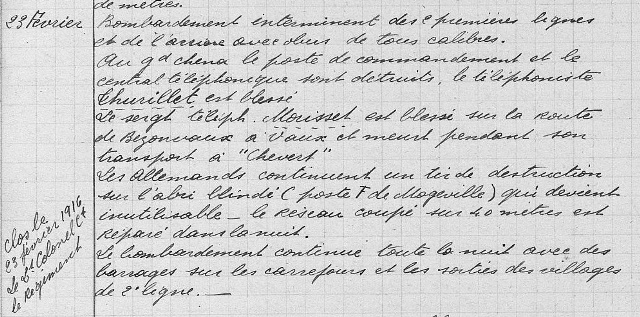 de mètres.
23 Février
Bombardement interminent des 2e premières lignes
et de l'arrière avec obus de tous calibres.
Au gd chena le poste de commandement et le
central téléphonique sont détruits, le téléphoniste
Thurillet est blessé
Le sergt téléph. Morisset est blessé sur la route
de Bezonvaux à Vaux et meurt pendant son
transport à "Chevert"
Les Allemands continuent un tir de destruction
sur l'abri blindé (poste F de Mogeville) qui devient
inutilisable - le réseau coupé sur 40 mètres est
réparé dans la nuit.
Le bombardement continue toute la nuit avec des
barrages sur les carrefours et les sorties des villages
de 2e ligne. —
Clos le
23 février 1916
Le Lt Colonel Ct
le Régiment